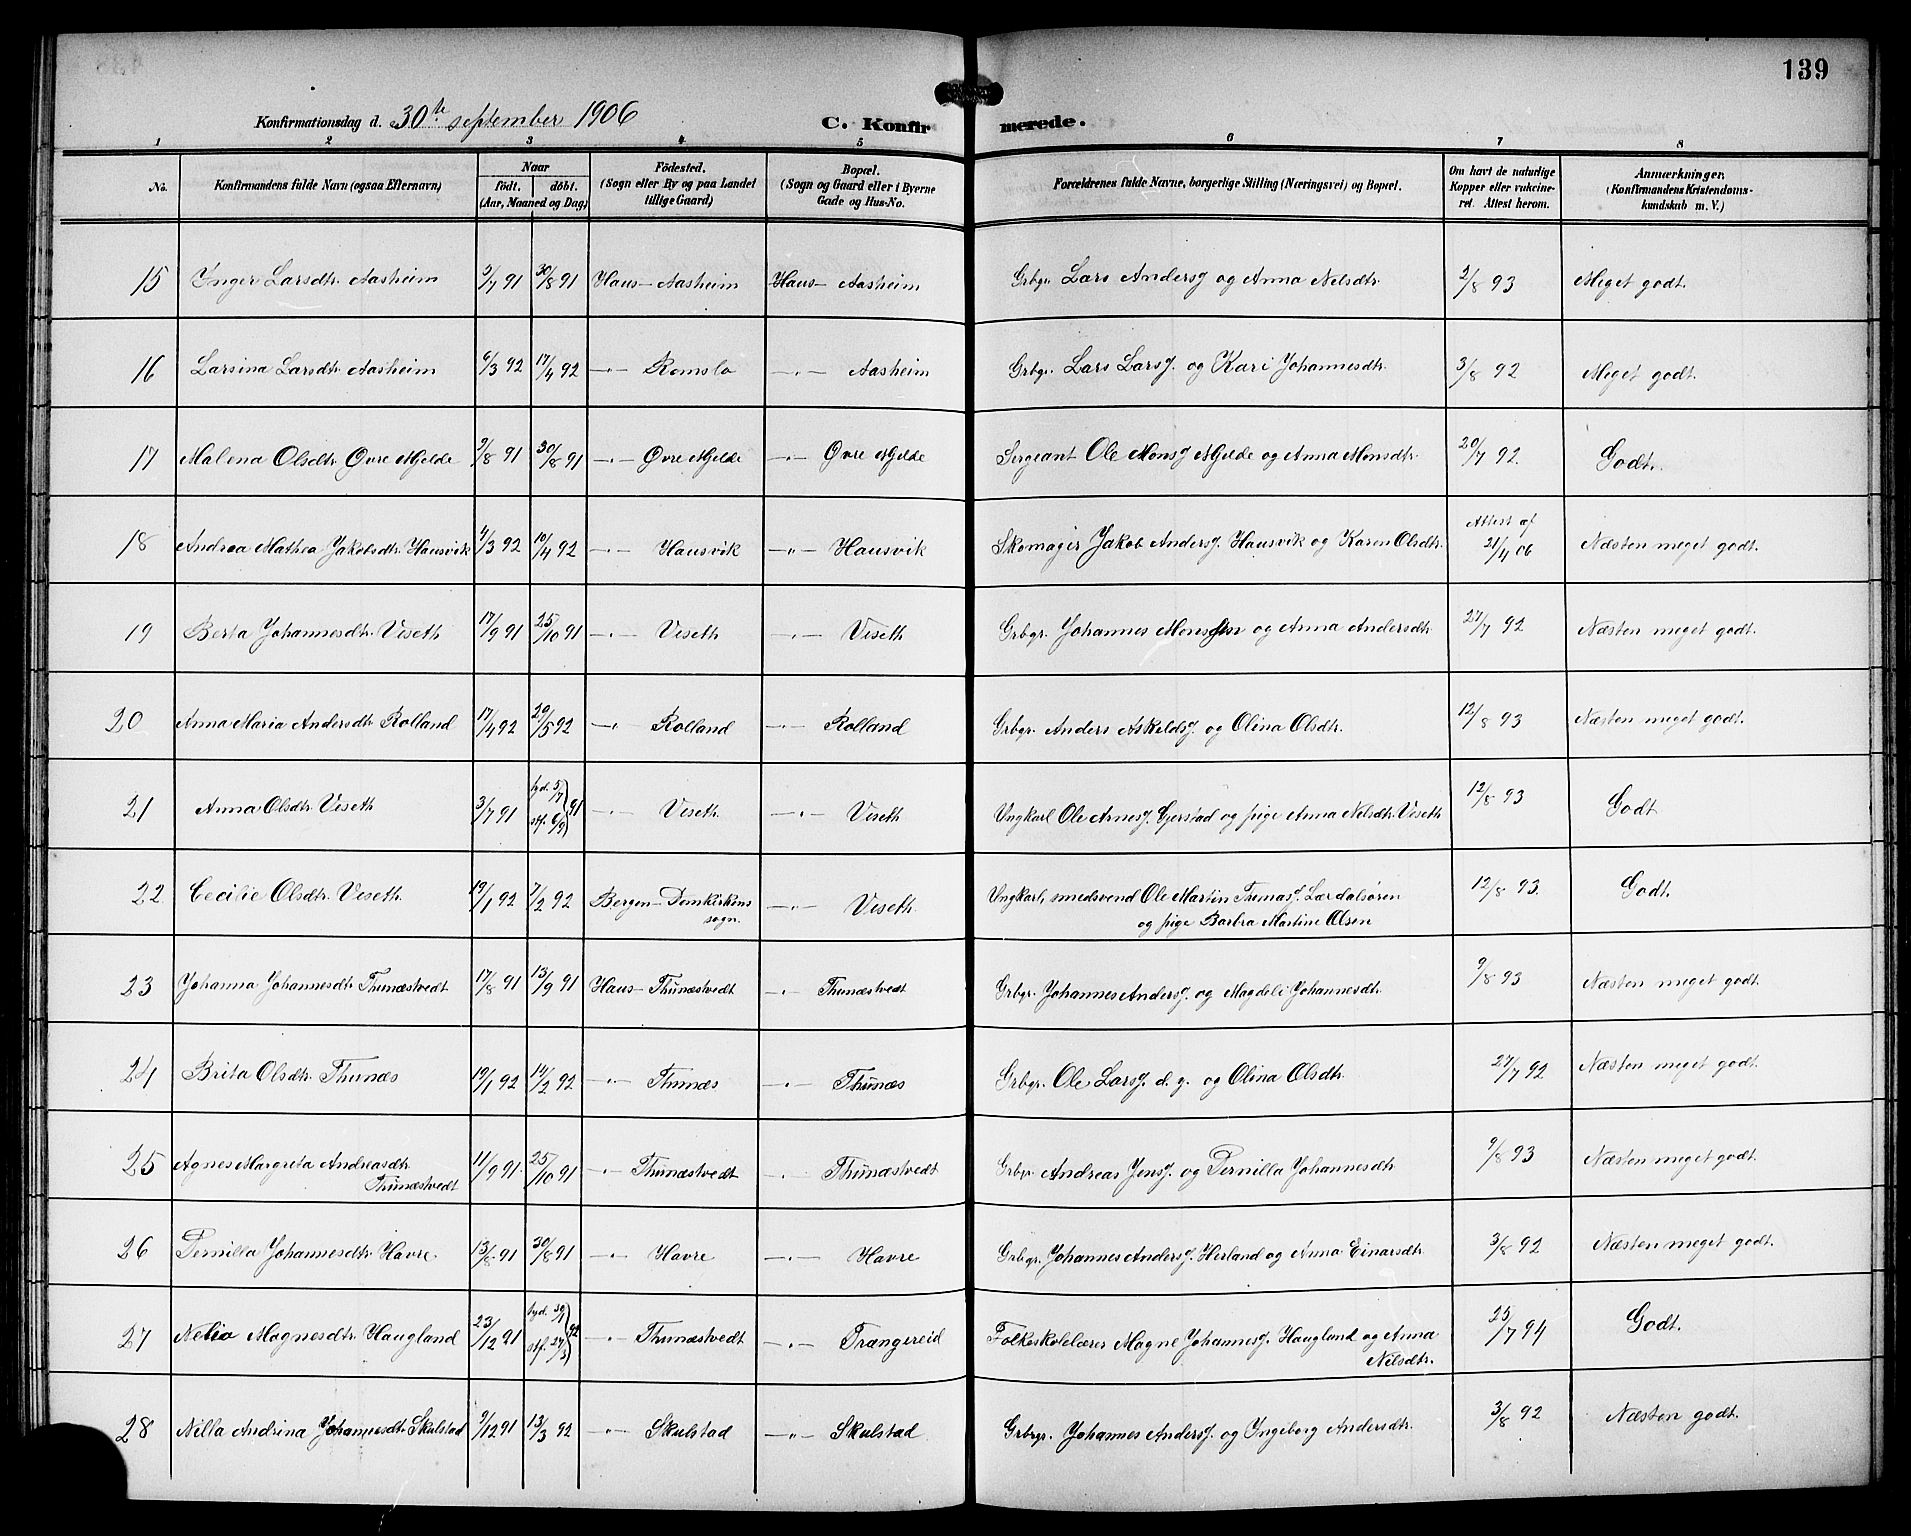 139
Konfirmationsdag d. 30te september 1906 C. Konfirmerede.
1 2 3 4 5 6 7 8
No. Konfirmandens fulde Navn (ogsaa Efternavn) Naar født. døbt. (Aar, Maaned og Dag) Födested. (Sogn eller By og paa Landet tillige Gaard) Bopæl. (Sogn og Gaard eller i Byerne Gade og Hus-No. Forældrenes fulde Navne, borgerlige Stilling (Næringsvei) og Bopæl. Om havt de naturlige Kopper eller vakcineret. Attest herom. Anmærkninger. (Konfirmandens Kristendomskundskab m. V.)
15 Inger Larsdtr. Aasheim 5/7 91 30/8 91 Haus - Aasheim Haus - Aasheim Grbgr. Lars Andersj og Anna Nelsdtr. 2/8 93 Meget godt.
16 Larsina Larsdtr. Aasheim 6/3 92 17/4 92 -"- Romslo -"- Aasheim Grbgr. Lars Larsj. og Kari Johannesdtr. 3/8 92 Meget godt.
17 Malena Olsdtr. Øvre Mjelde 9/8 91 30/8 91 -"- Øvre Mjelde -"- Øvre Mjelde Sergeant Ole Monsj Mjelde og Anna Monsdtr. 20/7 92. Godt.
18 Andrea Mathea Jakobsdtr. Hausvik 4/3 92 10/4 92 -"- Hausvik -"- Hausvik Skomager Jakob Andersj. Hausvik og Karen Olsdtr. Attest af 21/4 06 Næsten meget godt.
19 Berta Johannesdtr. Viseth 17/9 91 25/10 91 -"- Viseth -"- Viseth Grbgr. Johannes Monssen og Anna Andersdtr. 27/7 92 Næsten meget godt.
20 Anna Maria Andersdtr. Rolland 17/4 92 29/5 92 -"- Rolland -"- Rolland Grbgr. Anders Askeldsj. og Olina Olsdtr. 12/8 93 Næsten meget godt.
21 Anna Olsdtr. Viseth 3/7 91 hjd. 5/7 stf. 6/9 } 91 -"- Viseth. -"- Viseth Ungkarl Ole Arnesj. Gjerstad og pige Anna Nelsdtr. Viseth 12/8 93 Godt
22 Cecilie Olsdtr. Viseth. 19/1 92 7/2 92 Bergen - Domkirkens sogn. -"- Viseth. Ungkarl, smedsvend Ole Martin Thomasj. Lærdalsøren
og pige Barbra Martine Olsen 12/8 93. Godt.
23 Johanna Johannesdtr. Thunæstvedt 17/8 91 13/9 91 Haus - Thunæstvedt -"- Thunæstvedt Grbgr. Johannes Andersj. og Magdeli Johannesdtr. 9/8 93 Næsten meget godt.
24 Brita Olsdtr. Thunæs 19/1 92 14/2 92 -"- Thunæs -"- Thunæs Grbgr. Ole Larsj. d. y. og Olina Olsdtr. 27/7 92 Næsten meget godt.
25 Agnes Margreta Andreasdtr.
Thunæstvedt 11/9 91. 25/10 91 -"- Thunæstvedt -"- Thunæstvedt Grbgr. Andreas Jensj. og Pernilla Johannesdtr. 9/8 93 Næsten meget godt.
26 Pernilla Johannesdtr. Havre. 13/8 91 30/8 91 -"- Havre -"- Havre Grbgr. Johannes Andersj. Herland og Anna Einarsdtr. 3/8 92 Næsten meget godt.
27 Magnesdtr. Haugland 23/12 91 hjd. stf. 27/3 } 92 -"- Thunæstvedt -"- Trængereid Folkeskolelærer Magne Johannesj. Haugland og Anna
Nelsdtr. 25/7 94 Godt.
28 Nilla Andrina Johannesdtr. Skulstad 9/12 91 13/3 92 -"- Skulstad -"- Skulstad Grbrgr. Johannes Andersj. og Ingeborg Andersdtr. 3/8 92 Næsten godt.